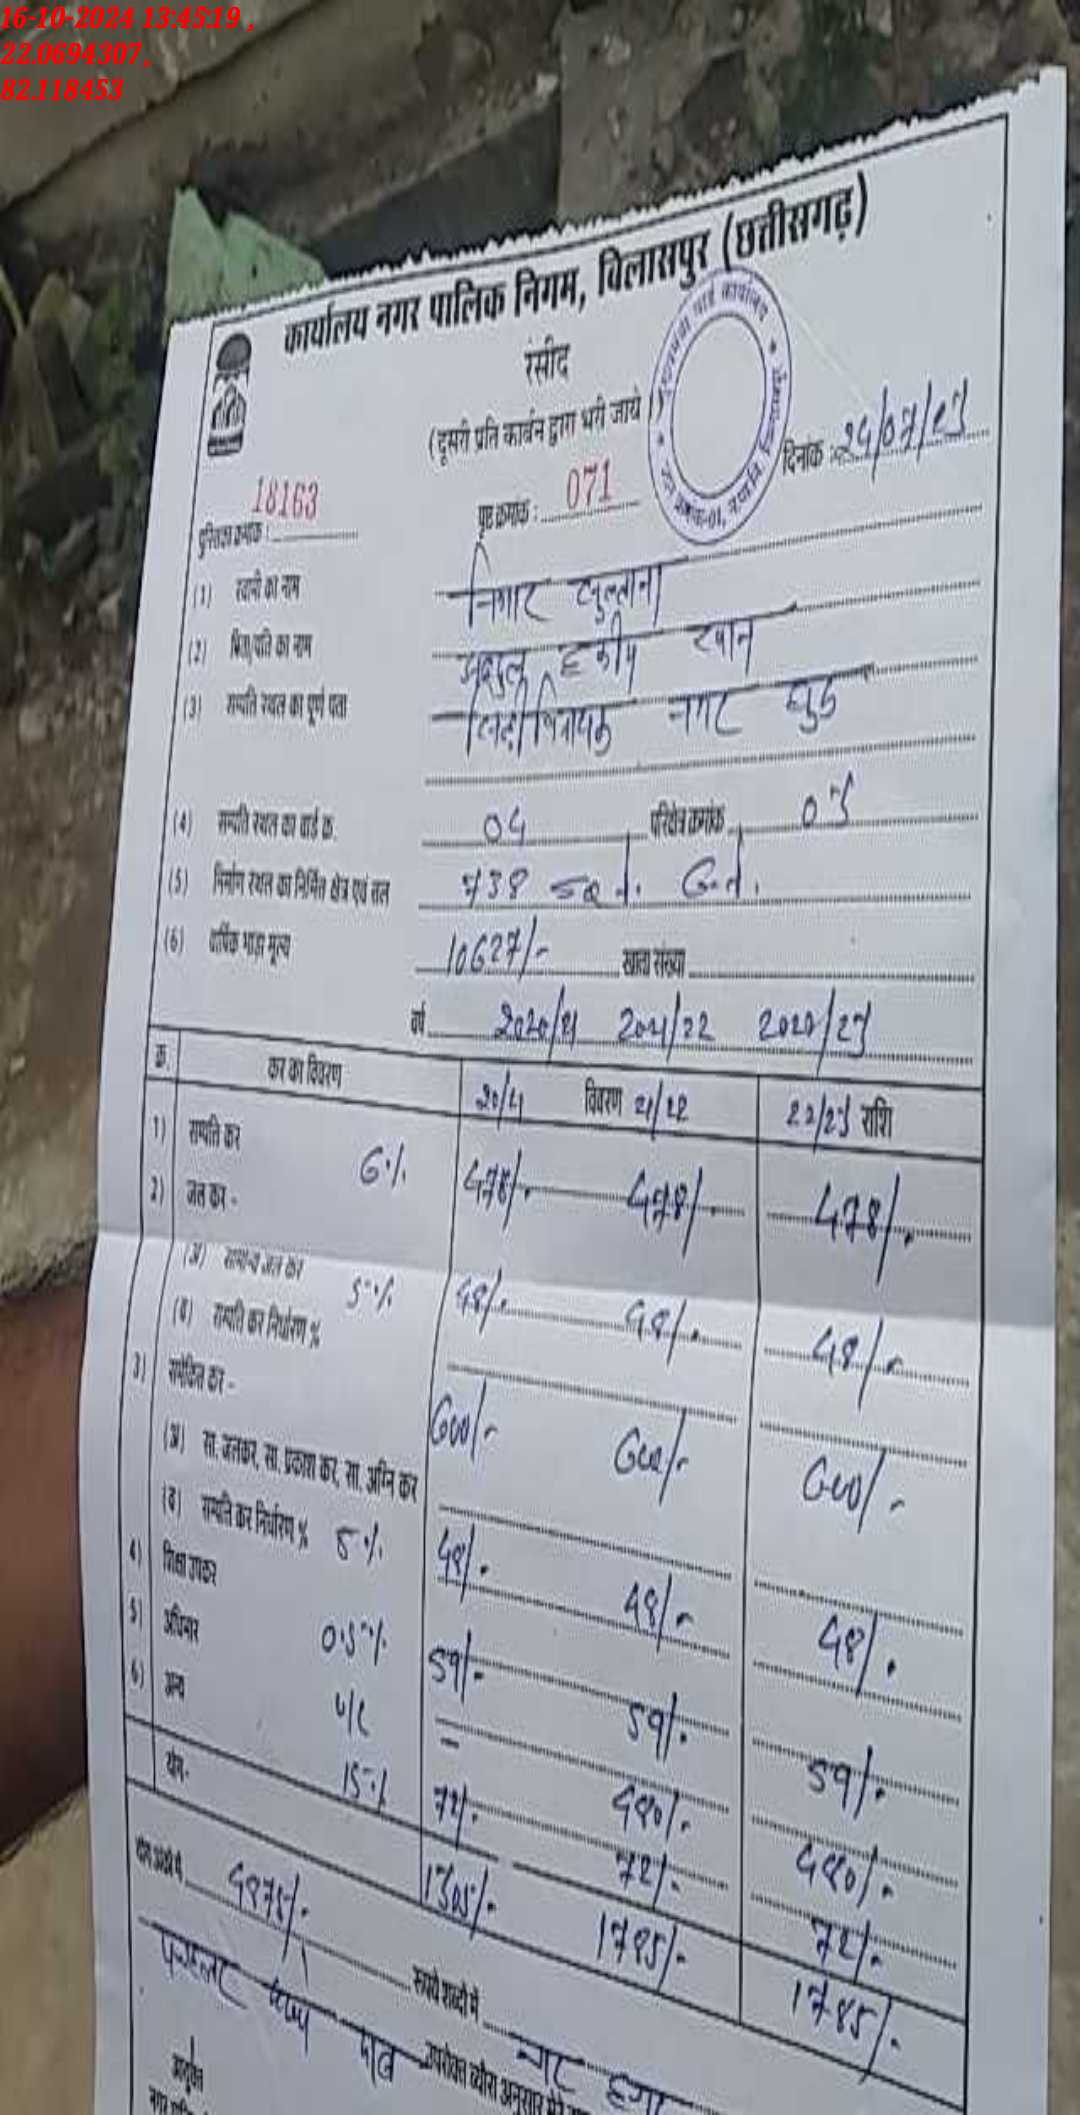 16-10-2024 13:45:19 ,
22.0694307,
82.118453
कार्यालय नगर पालिक निगम, विलासपुर (छत्तीसगढ़)
रसीद
(दूसरी प्रति कार्बन द्वारा भरी जाये)
दिनांक :
पुस्तिका क्रमांक : 18163 पृष्ठ क्रमांक : 071
(1) स्वामी का नाम निगार सुल्ताना
(2) पिता/पति का नाम अब्दुल हकीम खान
(3) सम्पति स्थल का पूर्ण पता नगर
(4) सम्पति स्थल का वार्ड क्र. 04 परिक्षेत्र क्रमांक
(5) निर्माण स्थल का निर्मित क्षेत्र एवं तल 738
(6) वार्षिक भाड़ा मूल्य 10627/- खाता संख्या
वर्ष 2020/21 2021/22
क्र. कर का विवरण 20/21 विवरण 21/22 22/23 राशि
1) सम्पति कर 6% 478/- 478/- 478/-
2) जल कर -
(अ) सामान्य जल कर 5% 48/- 48/- 48/-
(ब) सम्पति कर निर्धारण %
3) समेकित कर - 600/- 600/- 600/-
(अ) सा. जलकर, सा. प्रकाश कर, सा. अग्नि कर
(ब) सम्पति कर निर्धारण % 5% 48/- 48/- 48/-
4) शिक्षा उपकर
5) अधिभार 0.5% 59/- 59/- 59/-
6) अन्य 480/- 480/-
15% 72/- 72/- 72/-
योग- 1305/- 1785/- 1785/-
योग अंकों में 4875/- रूपये शब्दों में
उपरोक्त ब्यौरा अनुसार
आयुक्त